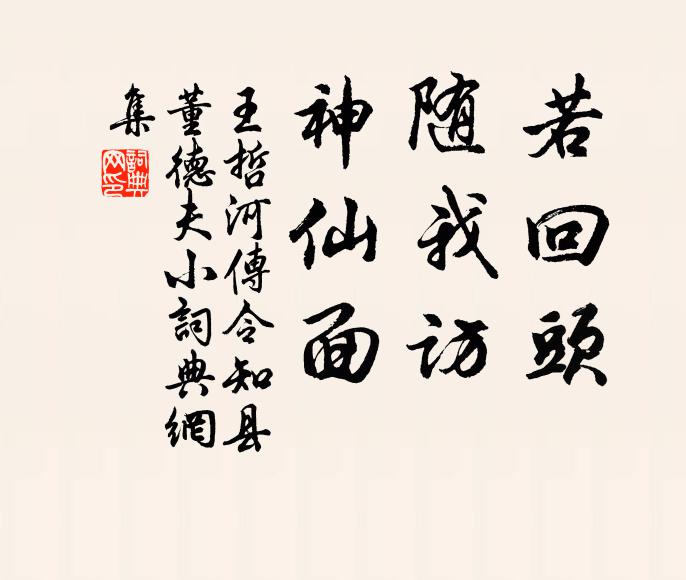 若回頭
随我访
神仙面
王哲河傳令知县
董德夫小詞典網
集
詞典网印